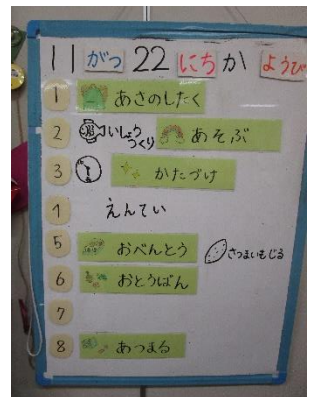 11 がつ 22 にち か ようび
1 あさのしたく
2 いしょうつくり あそぶ
3 かたづけ
4 えんてい
5 おべんとう さつまいもじる
6 おとうばん
7
8 あつまる